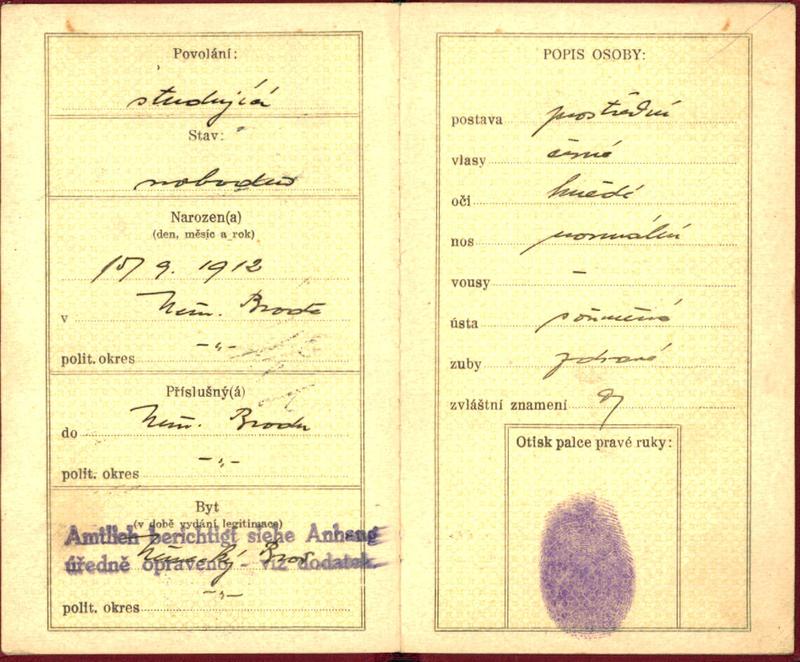 Povolání:
studující
Stav:
svobodný
Narozen(a)
(den, měsíc a rok)
15/9. 1912
v Něm. Brodě
polit. okres -„-
Příslušný(á)
do Něm. Brodu
polit. okres -„-
Byt
(v době vydání legitimace)
Amtlich berichtigt siehe Anhang
Německý Brod
úředně opraveno - viz dodatek.
polit. okres -„-
POPIS OSOBY:
postava prostřední
vlasy černé
oči hnědé
nos normální
vousy –
ústa souměrná
zuby zdravé
zvláštní znamení
Otisk palce pravé ruky: